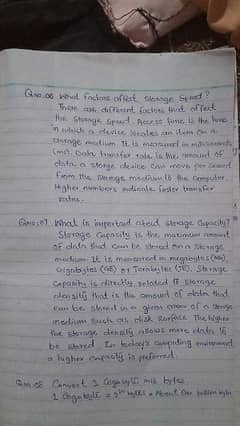 Qno.06 What Factors affect Storage Speed?
There are different factors that affect
the storage speed. Access time is the time
in which a device locates an item on a
storage medium. It is measured in milliseconds
(ms). Data transfer rate is the amount of
data a storge device can move per second
from the storage medium to the computer.
Higher numbers indicate faster transfer
rates.
Qno.07 What is important about storage Capacity?
Storage Capacity is the maximum amount
of data that can be stored on a storage
medium. It is measured in megabytes (MB),
Gigabytes (GB) or Terabytes (TB). Storage
capacity is directly related to storage
density that is the amount of data that
can be stored in a given area of a storage
medium such as disk surface. The higher
the storage density allows more data to
be stored. In today's computing environment
a higher capacity is preferred.
Qno.08 Convert 1 Gigabyte into bytes.
1 Gigabyte = bytes = About One billion byte